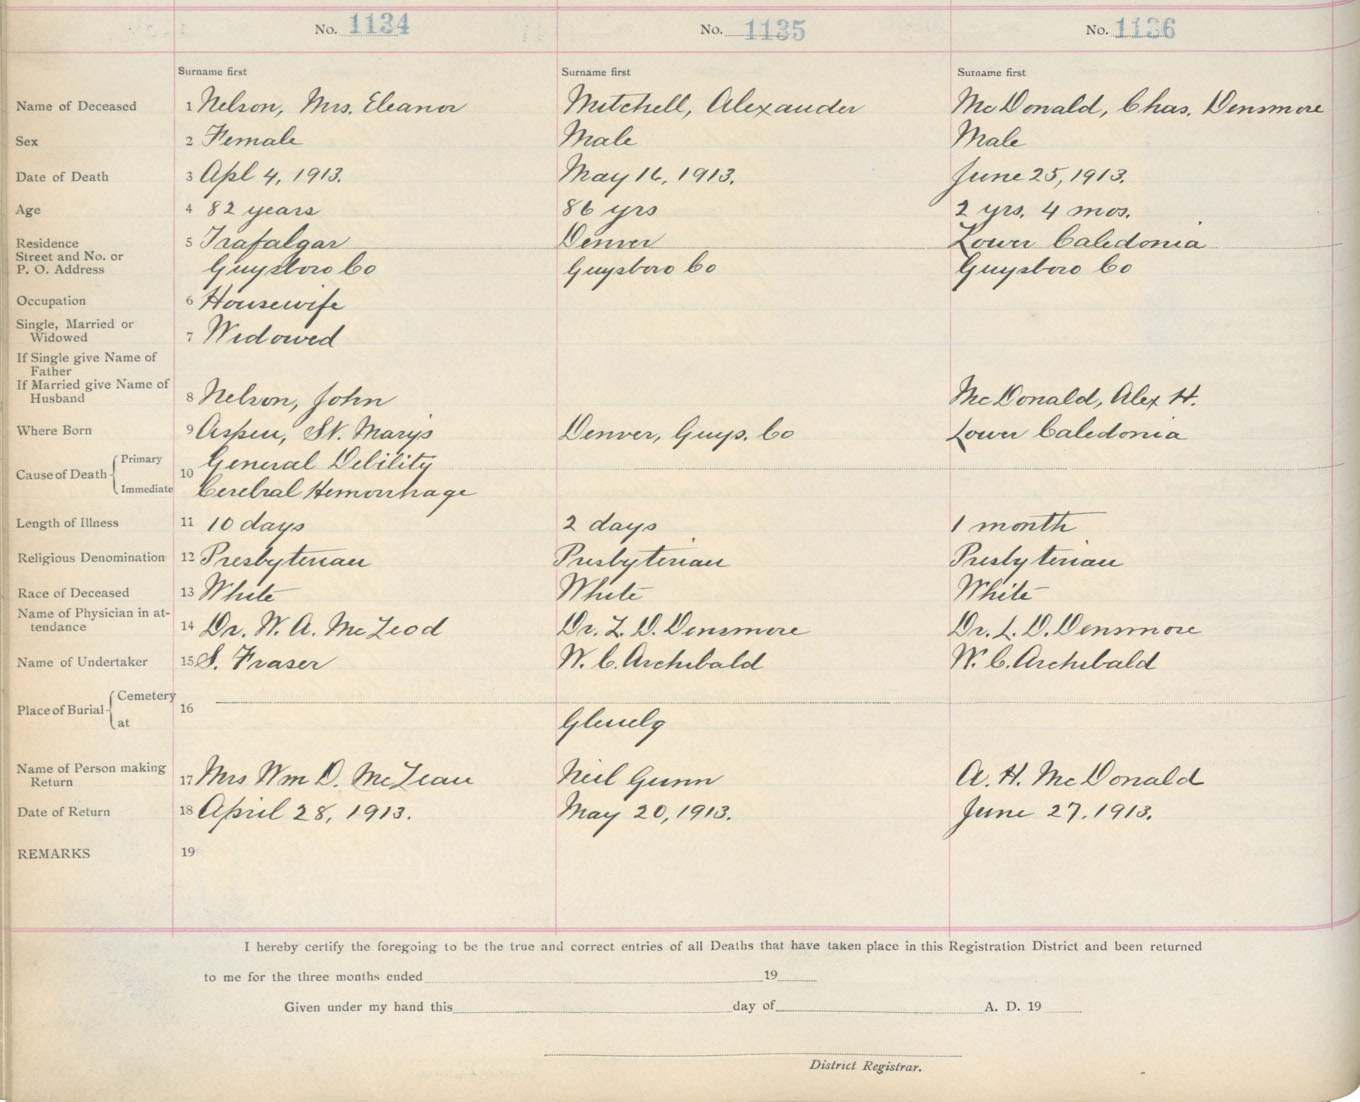 No. 1134 No. 1135 No. 1136
Surname first Surname first Surname first
Name of Deceased 1 Nelson, Mrs. Eleanor Mitchell, Alexander McDonald, Chas. Densmore
Sex 2 Female Male Male
Date of Death 3 Apl 4, 1913. May 16, 1913. June 25, 1913.
Age 4 82 years 86 yrs 2 yrs. 4 mos.
Residence 5 Trafalgar Denver Lower Caledonia
Street and No. or
P. O. Address Guysboro Co Guysboro Co Guysboro Co
Occupation 6 Housewife
Single, Married or
Widowed 7 Widowed
If Single give Name of
Father
If Married give Name of
Husband 8 Nelson, John McDonald, Alex H.
Where Born 9 Aspen, St. Marys Denver, Guys. Co Lower Caledonia
Cause of Death Primary 10 General Debility
Immediate Cerebral Hemorrhage
Length of Illness 11 10 days 2 days 1 month
Religious Denomination 12 Presbyterian Presbyterian Presbyterian
Race of Deceased 13 White White White
Name of Physician in at-
tendance 14 Dr. W. A. McLeod Dr. L. D. Densmore Dr. L. D. Densmore
Name of Undertaker 15 S. Fraser W. C. Archibald W. C. Archibald
Place of Burial Cemetery 16
at Glenelg
Name of Person making
Return 17 Mrs Wm D. McLean Neil Gunn A. H. McDonald
Date of Return 18 April 28, 1913. May 20, 1913. June 27, 1913.
REMARKS 19
I hereby certify the foregoing to be the true and correct entries of all Deaths that have taken place in this Registration District and been returned
to me for the three months ended 19
Given under my hand this day of A. D. 19
District Registrar.